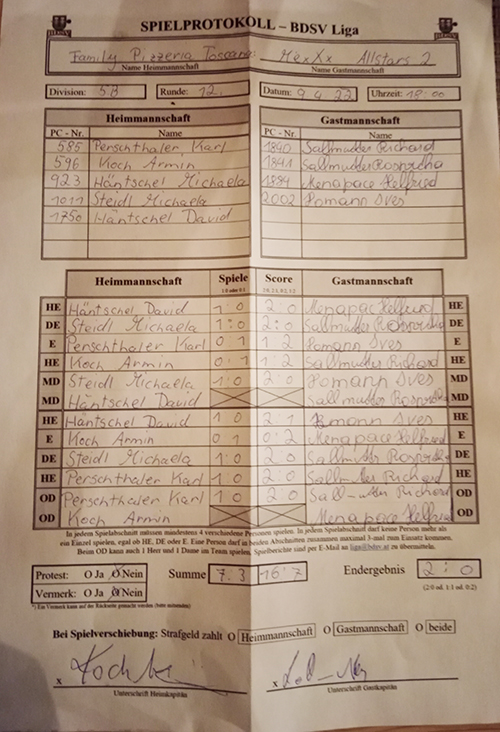 SPIELPROTOKOLL – BDSV Liga
Family Pizzeria Toscana: MexXx Allstars 2
Name Heimmannschaft Name Gastmannschaft
Division: 5B Runde: 12. Datum: 9.4.22 Uhrzeit: 18:00
Heimmannschaft Gastmannschaft
PC - Nr. Name PC - Nr. Name
585 Perschthaler Karl 1840 Sallmutter Richard
596 Koch Armin 1841 Sallmutter
923 Häntschel Michaela 1884 Menapace Helfried
1011 Steidl Michaela 2002 Pomann Ives
1750 Häntschel David
Heimmannschaft Spiele Score Gastmannschaft
1:0 oder 0:1 2:0, 2:1, 0:2, 1:2
HE Häntschel David 1:0 2:0 Menapac HE
DE Steidl Michaela 1:0 2:0 Sallmutter DE
E Perschthaler Karl 0:1 1:2 Pomann Ives E
HE Koch Armin 0:1 1:2 Sallmutter Richard HE
MD Steidl Michaela 1:0 2:0 Pomann Ives MD
MD Häntschel David Sallmutter MD
HE Häntschel David 1:0 2:1 Pomann Ives HE
E Koch Armin 0:1 0:2 Menapace Helfried E
DE Steidl Michaela 1:0 2:0 Sallmutter DE
HE Perschthaler Karl 1:0 2:0 Sallmutter Richard HE
OD Perschthaler Karl 1:0 2:0 Richard OD
OD Koch Armin Menapace Helfried OD
In jedem Spielabschnitt müssen mindestens 4 verschiedene Personen spielen. In jedem Spielabschnitt darf keine Person mehr als
ein Einzel spielen, egal ob HE, DE oder E. Eine Person darf in beiden Abschnitten zusammen maximal 3-mal zum Einsatz kommen.
Beim OD kann auch 1 Herr und 1 Dame im Team spielen. Spielberichte sind per E-Mail an liga@bdsv.at zu übermitteln.
Protest: O Ja O Nein Summe 7:3 16:7 Endergebnis 2:0
Vermerk: O Ja O Nein (2:0 od. 1:1 od. 0:2)
*) Ein Vermerk kann auf der Rückseite gemacht werden (bitte umdrehen)
Bei Spielverschiebung: Strafgeld zahlt O Heimmannschaft O Gastmannschaft O beide
x x
Unterschrift Heimkapitän Unterschrift Gastkapitän